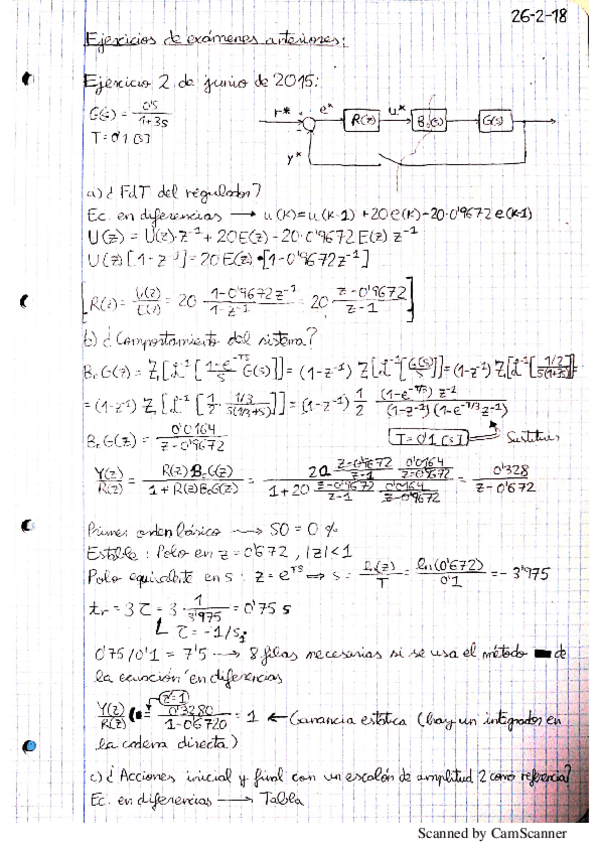 26-2-18
Ejercicios de exámenes anteriores:
Ejercicio 2 de junio de 2015:
G(s) = 0'5 / 1+3s
T = 0'1 [s]
r* e* R(z) u* B₀(s) G(s)
y*
a) ¿FdT del regulador?
Ec. en diferencias → u(k) = u(k-1) + 20e(k) - 20·0'9672 e(k-1)
U(z) = U(z)·z⁻¹ + 20E(z) - 20·0'9672 E(z) z⁻¹
U(z) [1 - z⁻¹] = 20E(z)·[1 - 0'9672z⁻¹]
[R(z) = U(z)/E(z) = 20 (1-0'9672z⁻¹)/(1-z⁻¹) = 20 (z-0'9672)/(z-1)]
b) ¿Comportamiento del sistema?
B₀G(z) = Z[L⁻¹[(1-e^-Ts)/s G(s)]] = (1-z⁻¹) Z[L⁻¹[G(s)/s]] = (1-z⁻¹) Z[L⁻¹[(1/2)/(s(1+3s))]] =
= (1-z⁻¹) Z[L⁻¹[1/2 · (1/3)/(s(1/3+s))]] = (1-z⁻¹) 1/2 · ((1-e^-T/3) z⁻¹)/((1-z⁻¹)(1-e^-T/3 z⁻¹))
B₀G(z) = 0'0164/(z-0'9672) T=0'1 [s] Sustituir
Y(z)/R(z) = R(z)B₀G(z)/(1+R(z)B₀G(z)) = (20 (z-0'9672)/(z-1) · 0'0164/(z-0'9672))/(1+20 (z-0'9672)/(z-1) · 0'0164/(z-0'9672)) = 0'328/(z-0'672)
Primer orden básico → SO = 0 %
Estable: Polo en z=0'672, |z|<1
Polo equivalente en s: z = e^Ts ⇒ s = Ln(z)/T = ln(0'672)/0'1 = -3'975
tr = 3τ = 3·1/3'975 = 0'75 s
τ = -1/s;
0'75/0'1 = 7'5 → 8 filas necesarias si se usa el método de
la ecuación en diferencias
Y(z)/R(z) z=1 = 0'3280/(1-0'6720) = 1 ← Ganancia estática (hay un integrador en
la cadena directa)
c) ¿Acciones inicial y final con un escalón de amplitud 2 como referencia?
Ec. en diferencias → Tabla
Scanned by CamScanner